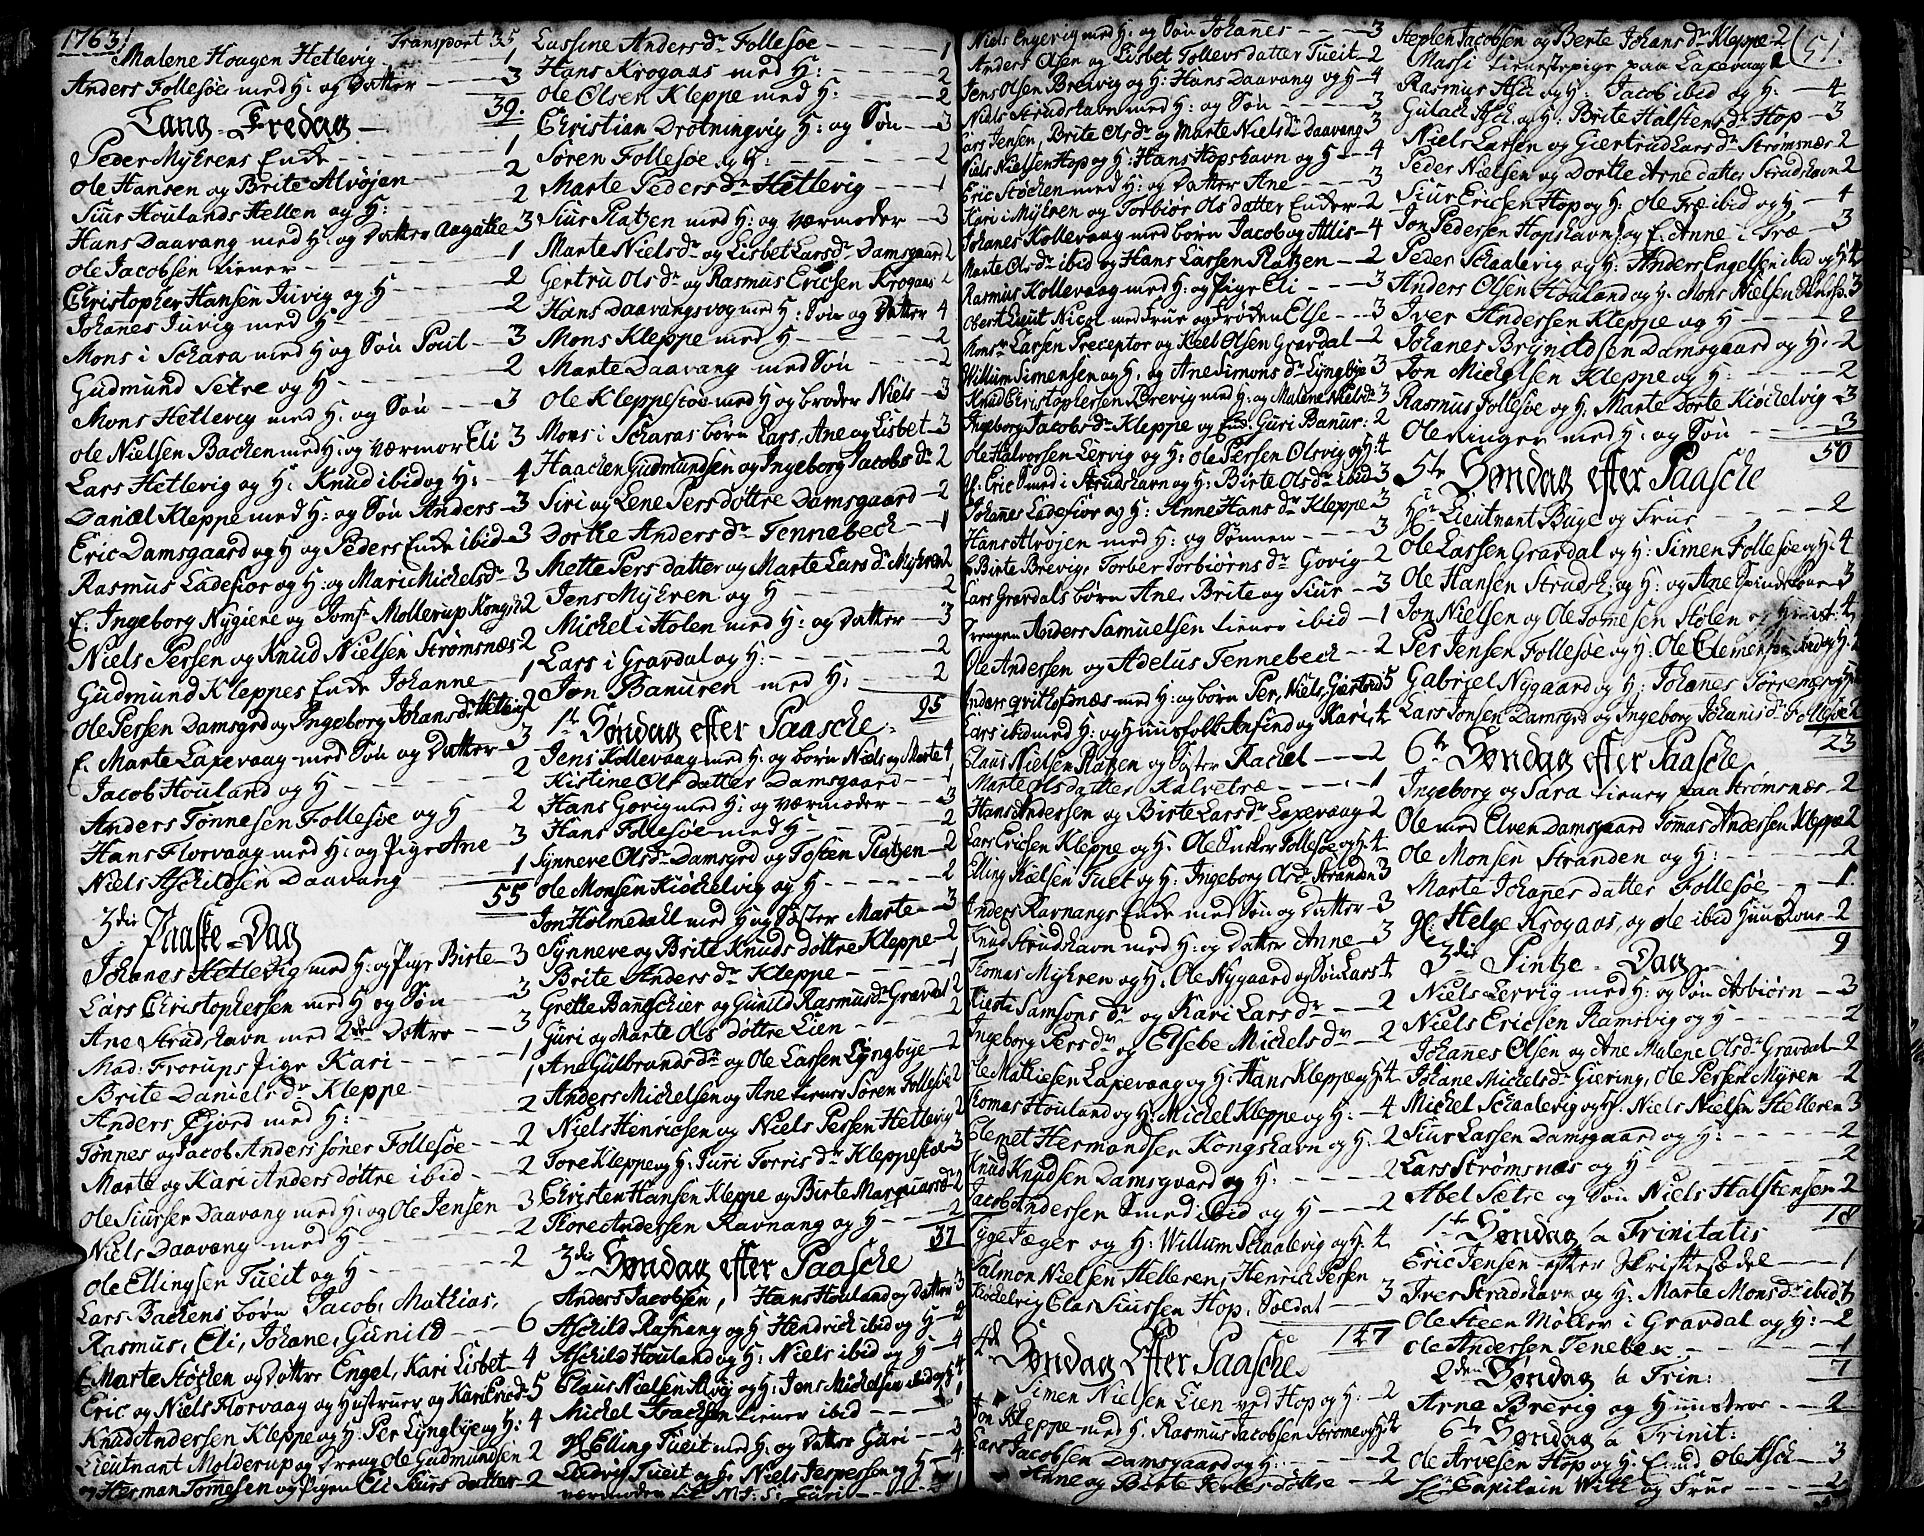 1763
Transport 35
Malene Haagen Hetlevig 1
Anders Follesøe med H: og Datter 3
39.
Lang-Fredag
Peder Myhrens Enke 1
Ole Hansen og Brite Alvøjen 2
Siur Houlands Hellen og H: 2
Hans Daavang med H: og Datter Aagathe 3
Ole Jacobsen tiener 1
Christopher Hansen Juvig og H 2
Johanes Juvig med H 2
Mons i Schara med H og Søn Poul 3
Gudmund Setre og H 2
Mons Hetlevig med H: og Søn 3
Ole Nielsen Bachen med H: og værmor Eli 3
Lars Hetlevig og H: Knud ibid og H: 4
Daniel Kleppe med H: og Søn Anders 3
Eric Damsgaard og H og Peders Enke ibid 3
Rasmus Ladefior og H: og Mari Michelsdr 3
E. Ingeborg Nygiene og Jomfr Mollerup Kongsh 2
Niels Persen og Knud Nielsen Strømsnæs 2
Gudmund Kleppes Enke Johanne 1
Ole Persen Damsgrd og Ingeborg Johansdr 2
E. Marte Laxevaag med Søn og Datter 3
Jacob Houland og H 2
Anders Tønnesen Follesøe og H 2
Hans Florvaag med H: og Pige Ane 3
Niels Aschildsen Daavang 1
55
3die Paaske-Dag
Johanes Hetlevig med H: og Pige Birte 3
Lars Christophersen med H og Søn 3
Ane Strudshavn med 2de Dattre 3
Mad. Frorups Pige Kari 1
Brite Danielsdr Kleppe 1
Anders Fjord med H: 2
Tønnes og Jacob Anderssøner Follesøe 2
Marte og Kari Andersdøttre ibid 2
Ole Siursen Daavang med H: og Ole Jensen 3
Niels Daavang med H 2
Ole Ellingsen Tueit og H 2
Lars Bachens børn Jacob, Mathias,
Rasmus, Eli, Johane, Gunild 6
E. Marte Støchen og Dattre Engel, Kari Lisbet 4
Eric og Niels Florvaag og Hustruer og Kari 5
Knud Andersen Kleppe og H: Per Lyngbye og H: 4
Lieutnant Molderup og Dreng Ole Gudmundsen 2
og Herman Tomesen og Pigen Eli Siurs datter 2
Lussine Andersdr Follesøe 1
Hans Krogaas med H: 2
Ole Olsen Kleppe med H: 2
Christian Drotningvig H: og Søn 3
Søren Follesøe og H: 2
Marte Pedersdr Hetlevig 1
Siur Platzen med H: og værmoder 3
Marte Nielsdr og Lisbet Larsdr Damsgaard 2
Gertru Olsdr og Rasmus Ericsen Krogaas 2
Hans Daavangsvog med H: Søn og Datter 4
Mons Kleppe med H 2
Marte Daavang med Søn 2
Ole Kleppestøe med H og broder Niels 3
Mons i Scharas børn Lars, Ane og Lisbet 3
Haachen Gudmundsen og Ingeborg Jacobsdr 2
Siri og Lene Persdøttre Damsgaard 2
Dorthe Andersdr Tennebech 1
Mette Persdatter og Marte Larsdr Myhren 2
Jens Myhren og H 2
Michel i Holen med H: og Datter 3
Lars i Gravdal og H: 2
Jon Banuren med H: 2
95
1te Søndag efter Paasche
Jens Kollevaag med H: og børn Niels og Marte 4
Kistine Olsdatter Damsgaard 1
Hans Govig med H: og værmoder 3
Hans Follesøe med H 2
Synneve Olsdr Damsgrd og Tosten Platzen 2
Ole Monsen Kiøchelvig og H 2
Jon Holmedahl med H og Søster Marte 3
Synneve og Brite Knudsdøttre Kleppe 2
Brite Andersdr Kleppe 1
Grette Bangschier og Gunild Rasmusdr Gravdal 2
Guri og Marte Olsdøttre Lien 2
Ane Gulbrandsdr og Ole Larsen Lyngbye 2
Anders Michelsen og Ane tiener Søren Follesøe 2
Niels Henricsen og Niels Persen Hetlevig 2
Tore Kleppe og H: Turi Torrisdr Kleppestøe 3
Christen Hansen Kleppe og Birte Marquarsdr 2
Tore Andersen Ravnang og H 2
37
3die Søndag efter Paasche
Anders Jacobsen, Hans Houland og Datter 3
Aschild Rafnang og H Hendrich ibid og H 4
Aschild Houland og H: Niels ibid og H 4
Claus Nielsen Alvig og H: Jens Michelsen ibid og H 4
Michel Haachsen tiener ibid 1
Gl. Elling Tueit med H: og Datter Guri 3
Ludvig Tueit og H: Niels Jespersen og H 4
værmoder 1
Niels Engevig med H: og Søn Johanes 3
Anders Olsen og Lisbet Tollevsdatter Tueit 2
Jens Olsen Brevig og H: Hans Daavang og H 4
Niels Strudshavn med H: og Søn 3
Lars Jensen, Brite Olsdr og Marte Nielsdr Daavang 3
Niels Nielsen Hop og H: Hans Hopshavn og H 4
Eric Støchen med H: og Datter Ane 3
Kari i Myhren og Torbiør Olsdatter Enker 2
Johanes Kollevaag med børn Jacob og Allis 4
Marte Olsdr ibid og Hans Larsen Platzen 2
Rasmus Kollevaag med H: og Pige Eli 3
Oberst Lieut Nicol med Frue og Frøken Else 3
Monsr Larsen Preceptor og Keel Olsen Gravdal 2
Willum Simensen og H. og Ane Simonsdr Lyngbye 3
Knud Christophersen Brevig med H: og Malene Nielsdr 3
Ingeborg Jacobsdr Kleppe og Guri Banur: 2
Ole Halvorsen Lervig og H: Ole Persen Olsvig og H: 4
Gl: Eric Smed i Strudshavn og H: Birte Olsdr ibid 3
Johanes Ladefior og H: Anne Hansdr Kleppe 3
Hans Alvøjen med H: og Sønnen 3
E Birte Brevig, Torber Torbiørnsdr Govig 2
Lars Gravdals børn Ane, Brite og Siur 3
Drengen Anders Samuelsen tiener ibid 1
Ole Andersen og Adelus Tennebech 2
Anders Qvitlofsnæs med H: og børn Per, Niels, Giertrud 5
Lars ibid med H: og Huusfolk Anfind og Kari 4
Claus Nielsen Platzen og Søster Rachel 2
Marte Olsdatter Kalvetræ 1
Hans Andersen og Birte Larsdr Laxevaag 2
Lars Ericsen Kleppe og H: Ole Follesøe og H: 4
Elling Nielsen Tuet og H: Ingeborg Olsdr Stranden 3
Anders Ravnangs Enke med Søn og Datter 3
Knud Strudshavn med H: og Datter Anne 3
Thomas Myhren og H: Ole Nygaard og Søn Lars 4
Kiersti Samsonsdr og Kari Larsdr 2
Ingeborg Persdr og Elsebe Michelsdr 2
Ole Mathiesen Laxevaag og H: Hans Kleppe og H: 4
Thomas Houland og H: Michel Kleppe og H: 4
Clemet Hermandsen Kongshavn og H: 2
Knud Knudsen Damsgaard og H: 2
Jacob Andersen Smed ibid og H 2
Tyge Jæger og H: Willum Schaalevig og H: 4
Salmon Nielsen Helleren, Henrich Persen
Kiøchelvig Clas Siursen Hop, Soldat 3
147
4de Søndag Efter Paasche
Simen Nielsen Lien ved Hop og H: 2
Jon Kleppe med H. Rasmus Jacobsen Strøme og H: 4
Lars Jacobsen Damsgaard og H: 2
Anne og Birte Iversdøttre 2
51.
Stephen Jacobsen og Berte Johansdr Kleppe 2
Massi tienestepige paa Laxevaag 1
Rasmus Ask og H: Jacob ibid og H: 4
Gulach Ask og H: Brite Halstensdr Hop 3
Niels Larsen og Giertrud Larsdr Strømsnæs 2
Peder Nielsen og Dorthe Arnedatter Strudshavn 2
Siur Ericsen Hop og H: Ole Træ ibid og H 4
Jon Pedersen Hopshavn og E. Anne i Træ 3
Peder Schaalevig og H: Anders Engelsen ibid og H: 4
Anders Olsen Houland og H: Mons Nielsen 3
Iver Andersen Kleppe og H 2
Johanes Bryndldsen Damsgaard og H: 2
Jon Michelsen Kleppe og H: 2
Rasmus Follesøe og H: Marte Dorte Kiøchelvig 3
Ole ringer med H: og Søn 3
50
5te Søndag efter Paasche
Hr Lieutnant Buge og Frue 2
Ole Larsen Gravdal og H: Simen Follesøe og H: 4
Ole Hansen Strudsh: og H: og Ane Spindekone 3
Jon Nielsen og Ole Tomesen Hølen og Hustr: 4
Per Jensen Follesøe og H: Ole Clemensen ibid og H:
Gabriel Nygaard og H: Johanes
Lars Jonsen Damsgrd og Ingeborg Johansdr Follesøe 2
23
6te Søndag efter Paasche
Ingeborg og Sara tiener paa Strømsnæs 2
Ole med Elven Damsgaard Tomas Andersen Kleppe 2
Ole Monsen Stranden og H: 2
Marte Johanesdatter Follesøe 1
Gl: Helge Krogaas, og Ole ibid Huuskone 2
9
3die Pintze-Dag
Niels Lervig med H: og Søn Asbiørn 3
Niels Ericsen Ramsvig og H 2
Johanes Olsen og Ane Malene Olsdr Gravdal 2
Johane Michelsdr Giering, Ole Persen Myren 2
Michel Schaalevig og H. Niels Nielsen Helleren 3
Siur Larsen Damsgaard og H: 2
Lars Strømsnæs og H 2
Abel Sætre og Søn Niels Halstensen 2
18
1te Søndag a Trinitatis
Eric Jensen efter Skriftesædle 1
Iver Strudshavn og H: Marte Monsdr ibid 3
Ole Steen Møller i Gravdal og H: 2
Ole Andersen Tenebek 1
7
2den Søndag a Trin:
Arne Brevig og Huustroe 2
6te Søndag a Trinit:
Ole Arvesen Hop og H: Ole Asch 3
Hr Capitain Witt og Frue 2